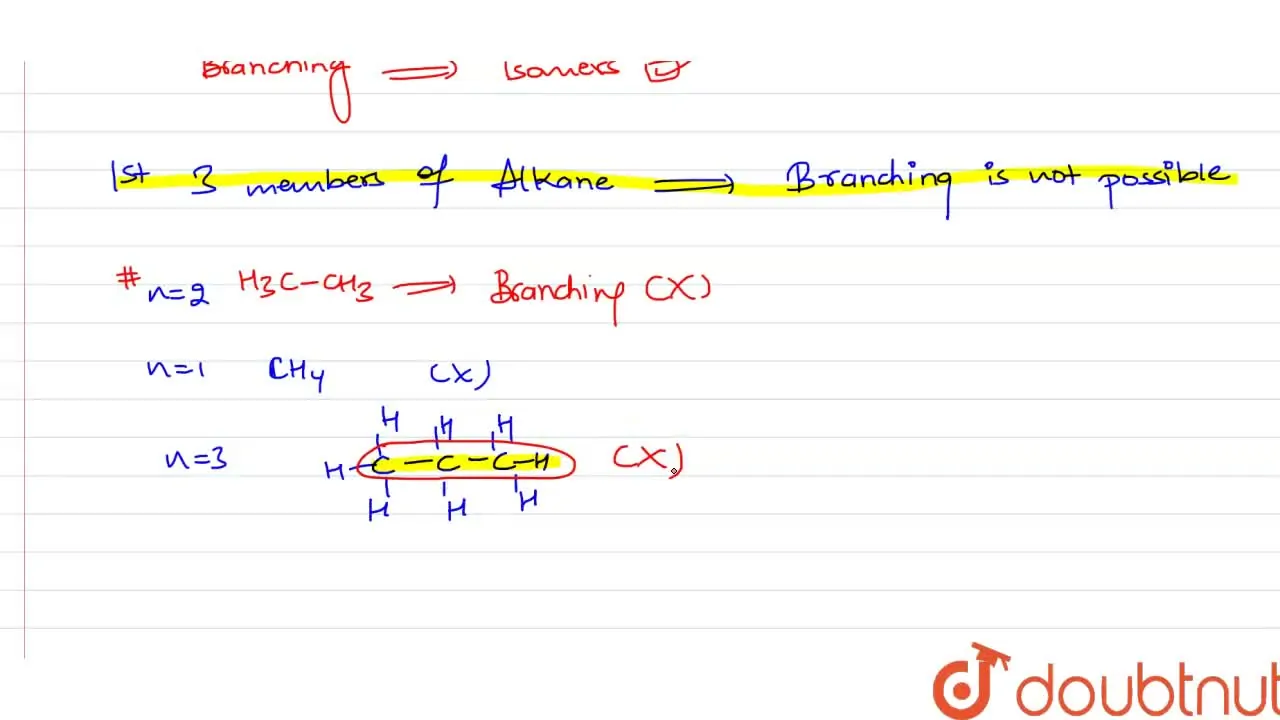 Branching ⟹ Isomers ☑
1st 3 members of Alkane ⟹ Branching is not possible
# n=2 H3C-CH3 ⟶ Branching (X)
n=1 CH4 (X)
H H H
n=3 H-C-C-C-H (X)
H H H
doubtnut